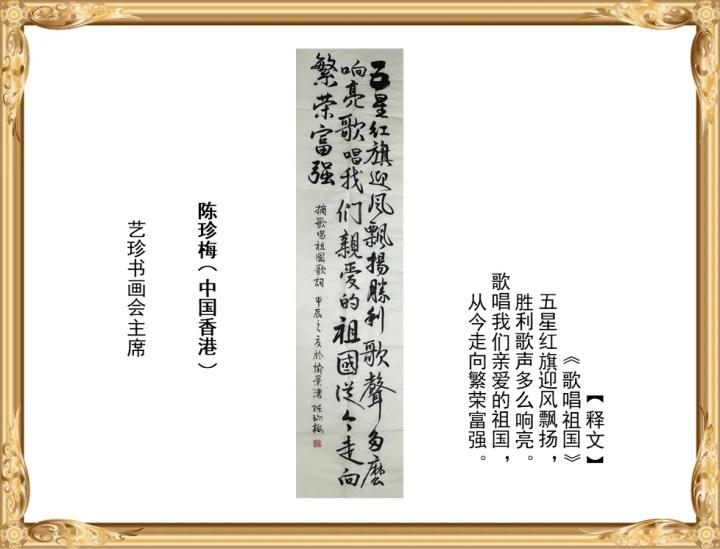 【释文】
《歌唱祖国》
五星红旗迎风飘扬，
胜利歌声多么响亮。
歌唱我们亲爱的祖国，
从今走向繁荣富强。
五星红旗迎风飘揚勝利歌聲多麼
响亮歌唱我们親爱的祖國從今走向
繁荣富强
摘歌唱祖國歌詞 甲辰之夏於愉景湾 陈珍梅
陈珍梅（中国香港）
艺珍书画会主席